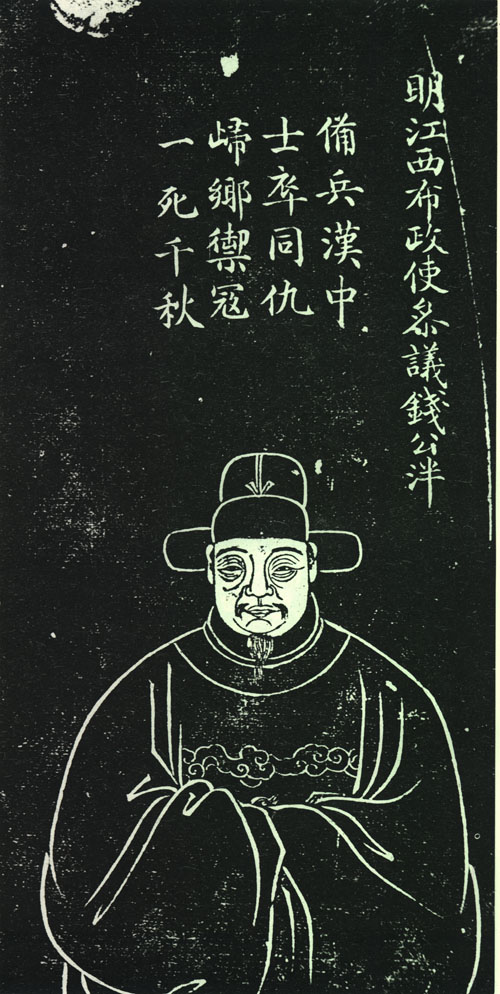 明江西布政使叅議錢公泮
備兵漢中
士卒同仇
歸鄉禦寇
一死千秋